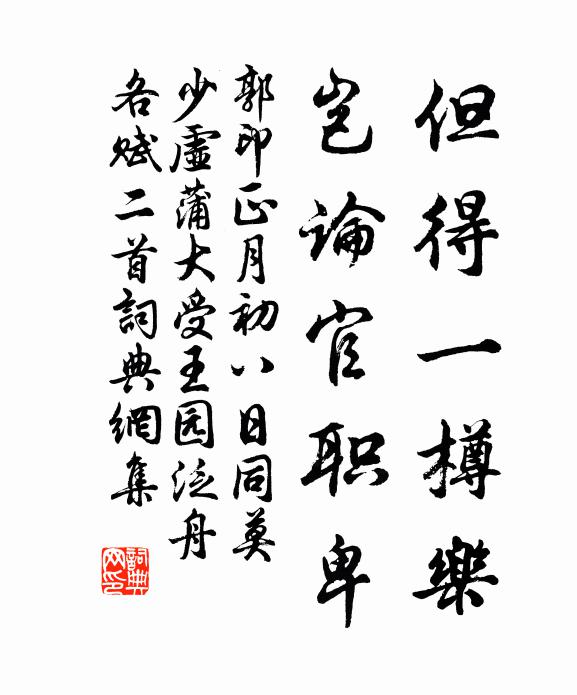 但得一樽樂
岂論官职卑
郭印正月初八日同莫
少虛蒲大受王园泛舟
各赋二首詞典網集
詞典網印